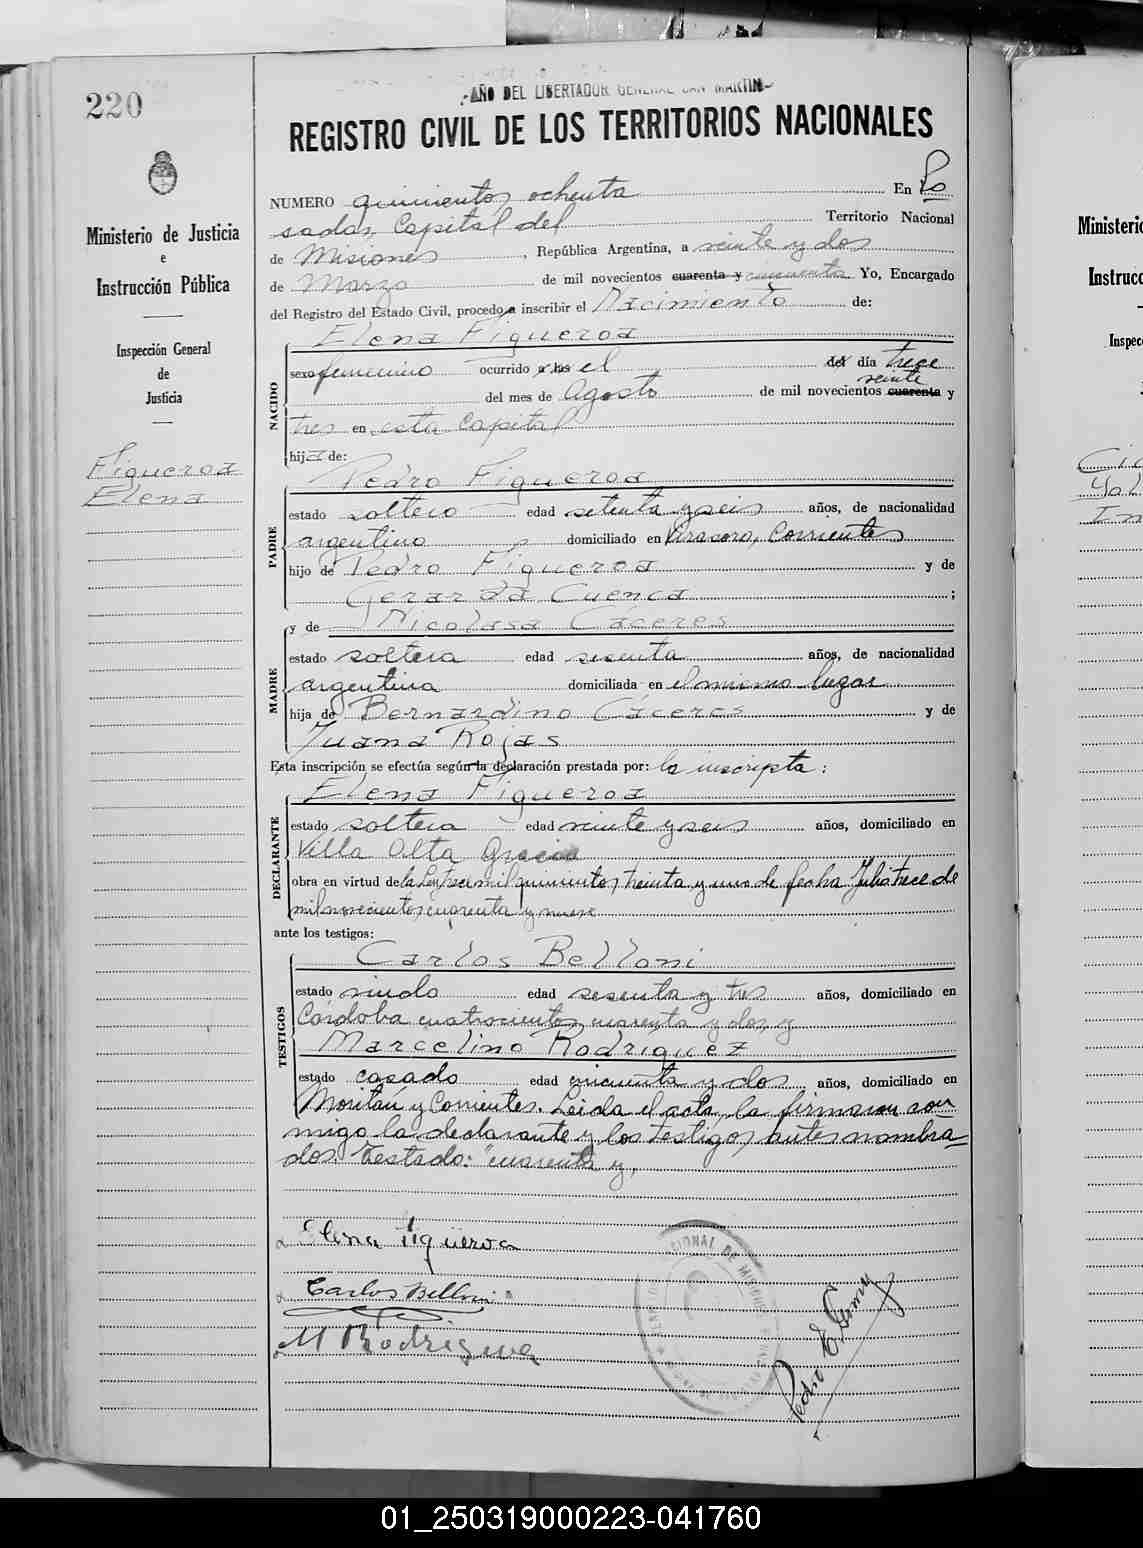 220
-AÑO DEL LIBERTADOR GENERAL SAN MARTIN-
REGISTRO CIVIL DE LOS TERRITORIOS NACIONALES
Ministerio de Justicia
e
Instrucción Pública
Inspección General
de
Justicia
Figueroa
Elena
NUMERO quinientos ochenta En Po
sadas, Capital del Territorio Nacional
de Misiones, República Argentina, a veinte y dos
de Marzo de mil novecientos cuarenta y cincuenta Yo, Encargado
del Registro del Estado Civil, procedo a inscribir el Nacimiento de:
Elena Figueroa
NACIDO
sexo femenino ocurrido a las el del día trece
veinte
del mes de Agosto de mil novecientos cuarenta y
tres en esta Capital
hija de:
Pedro Figueroa
PADRE
estado soltero edad setenta y seis años, de nacionalidad
argentino domiciliado en Virasoro, Corrientes
hijo de Pedro Figueroa y de
Gerarda Cuenca ;
y de Nicolasa Cáceres
MADRE
estado soltera edad sesenta años, de nacionalidad
argentina domiciliada en el mismo lugar
hija de Bernardino Cáceres y de
Juana Rojas
Esta inscripción se efectúa según la declaración prestada por: la inscripta:
Elena Figueroa
DECLARANTE
estado soltera edad veinte y seis años, domiciliado en
Villa Alta Gracia
obra en virtud de la Ley trece mil quinientos treinta y uno de fecha Julio trece de
mil novecientos cuarenta y nueve
ante los testigos:
Carlos Belloni
TESTIGOS
estado viudo edad sesenta y tres años, domiciliado en
Córdoba cuatrocientos cuarenta y dos, y
Marcelino Rodriguez
estado casado edad cincuenta y dos años, domiciliado en
y Corrientes. Leida el acta, la firmaron con
migo la declarante y los testigos antes nombra
dos. Testado: "cuarenta y,
Elena Figueroa
Carlos Belloni
M Rodriguez
Pedro E.
Ministerio
Instrucc
Inspec
01_250319000223-041760